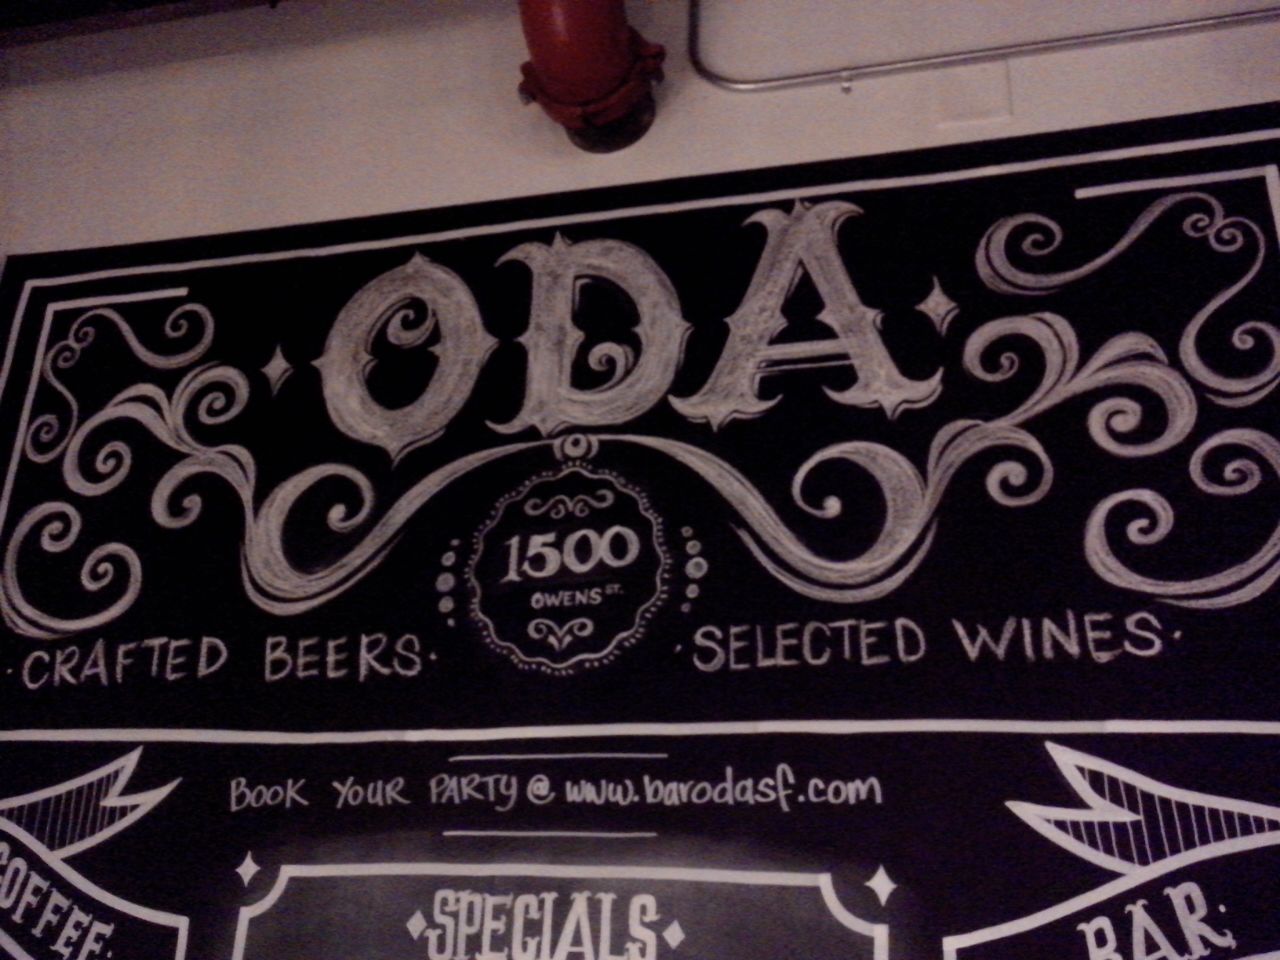 ODA
1500
OWENS ST.
·CRAFTED BEERS· ·SELECTED WINES·
BOOK YOUR PARTY @ www.barodasf.com
COFFEE·
SPECIALS
BAR·